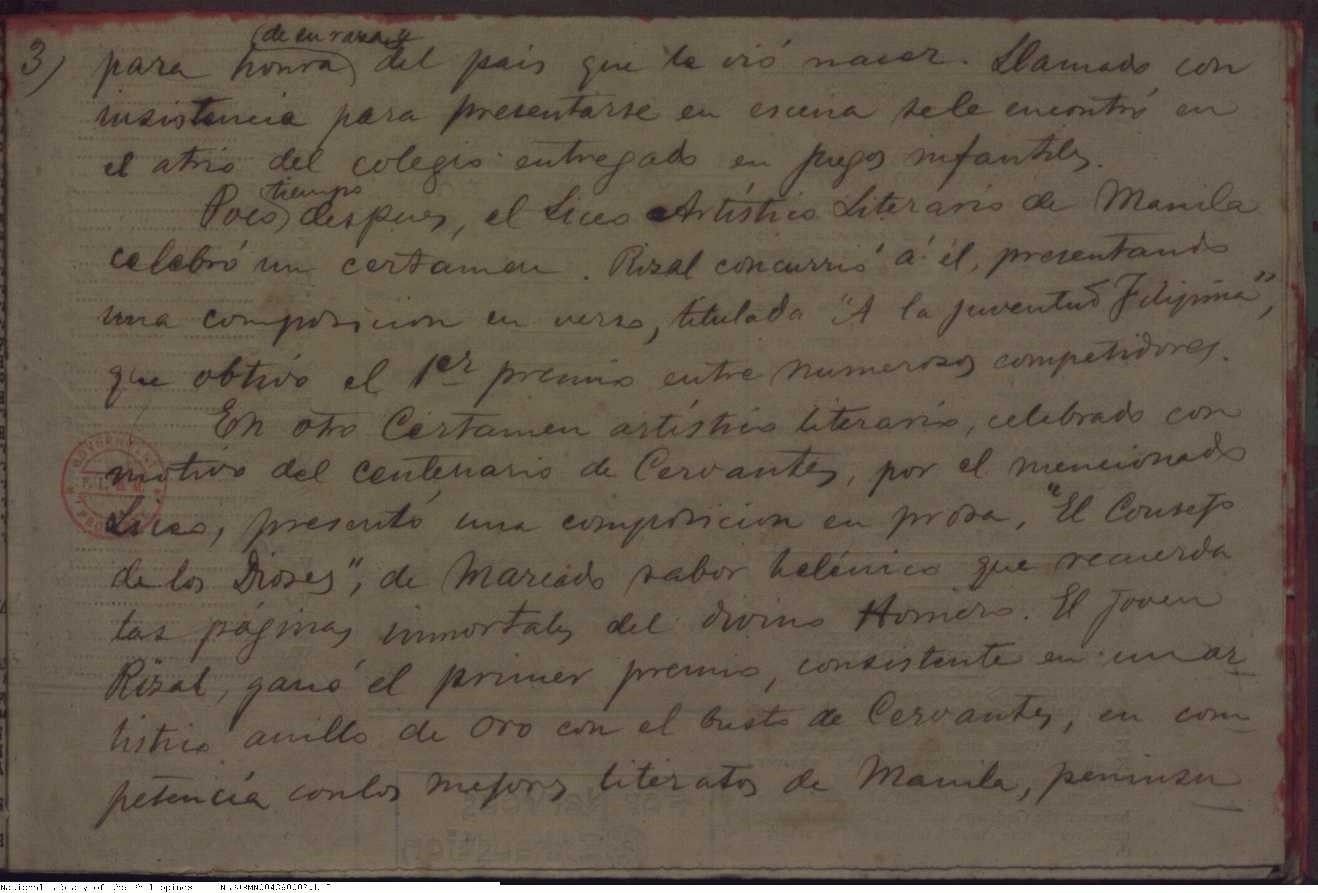 3) para honra (de su raza y del pais que le vió nacer. Llamado con
insistencia para presentarse en escena se le encontró en
el atrio del colegio entregado en juegos infantiles.
Poco (tiempo despues, el Liceo Artístico Literario de Manila
celebró un certamen. Rizal concurrió á él, presentando
una composicion en verso, titulada "A la juventud Filipina",
que obtuvo el 1er premio entre numerosos competidores.
En otro Certamen artístico literario, celebrado con
motivo del centenario de Cervantes, por el mencionado
Liceo, presentó una composicion en prosa, "El Consejo
de los Dioses", de marcado sabor helénico que recuerda
las páginas inmortales del divino Homero. El joven
Rizal, ganó el primer premio, consistente en un ar
tistico anillo de oro con el busto de Cervantes, en com
petencia con los mejores literatos de Manila, peninsu
National Library of the Philippines